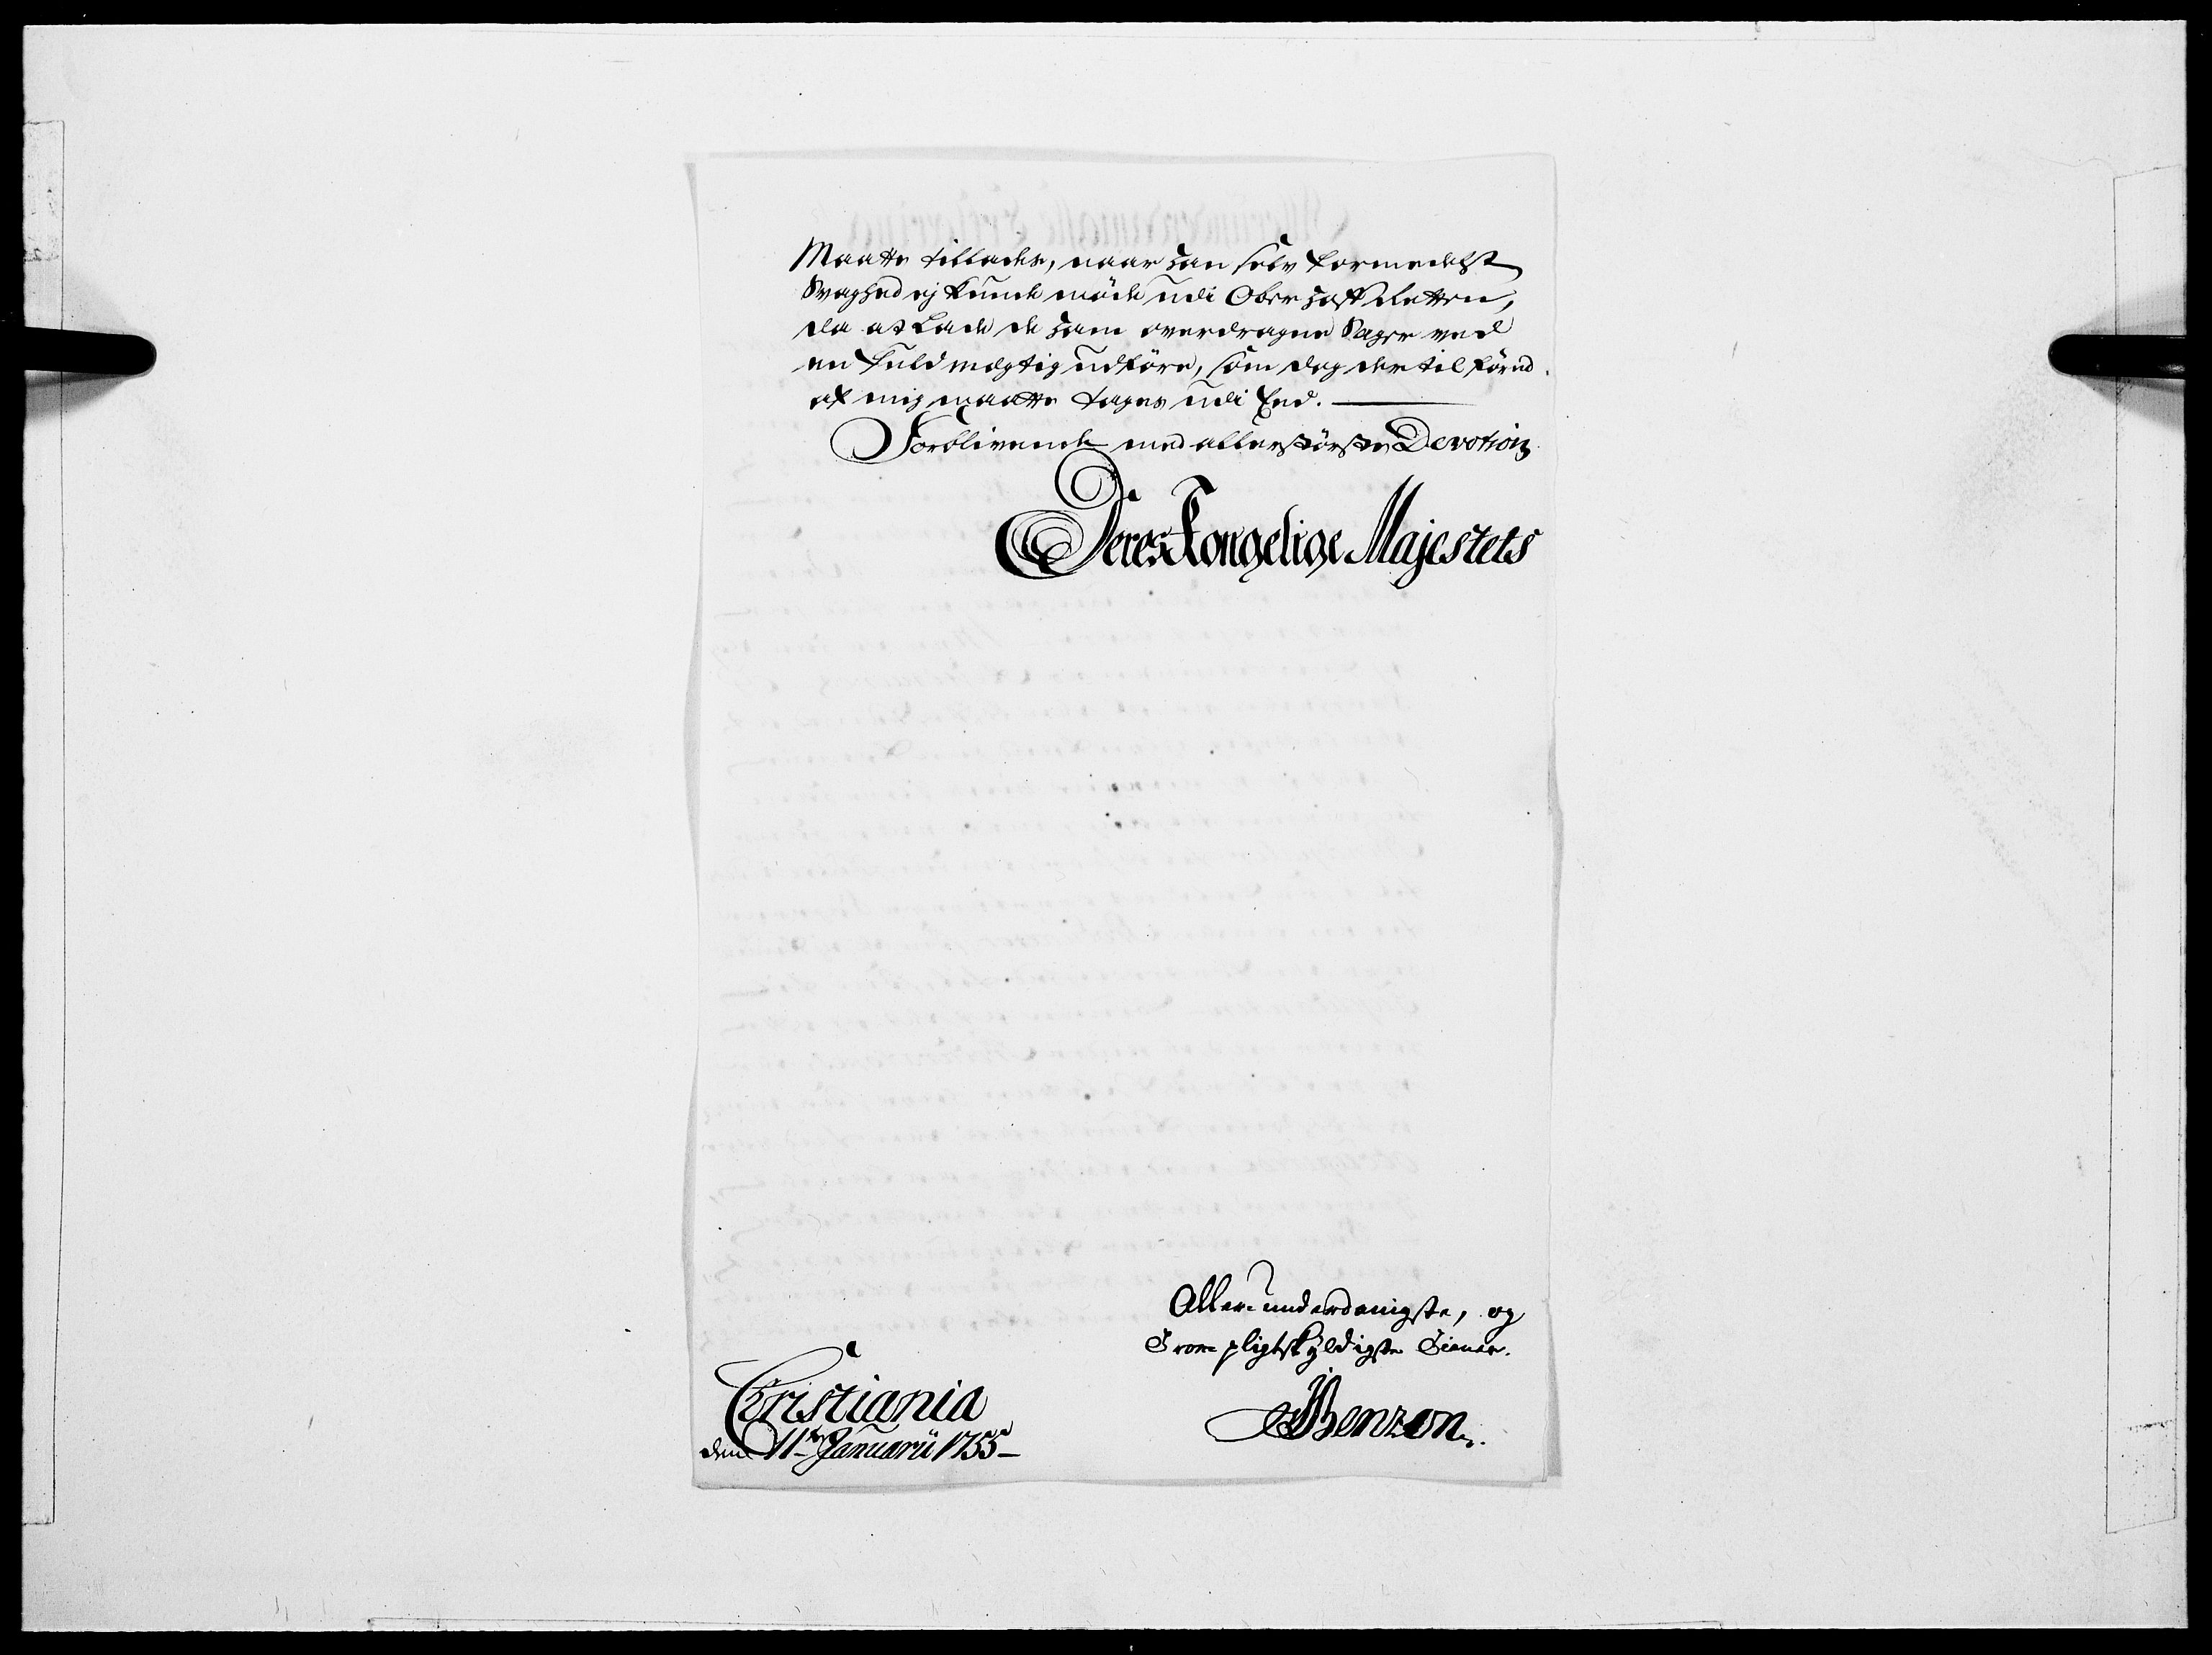 Maatte tillades, naar han selv formedelst
Svaghed ej kunde möde udi Ober Hoff Retten,
da at lade de ham overdragne Sager ved
en fuldmægtig udföre, som dog der til förend
af mig maatte tages udi Eed.
Forblivende med allerstörste Devotion
Deres Kongelige Majestets
Aller-underdanigste, og
Troe-pligtskyldigste Tiener.
Benzon.
Christiania
den 11te Januarii 1755